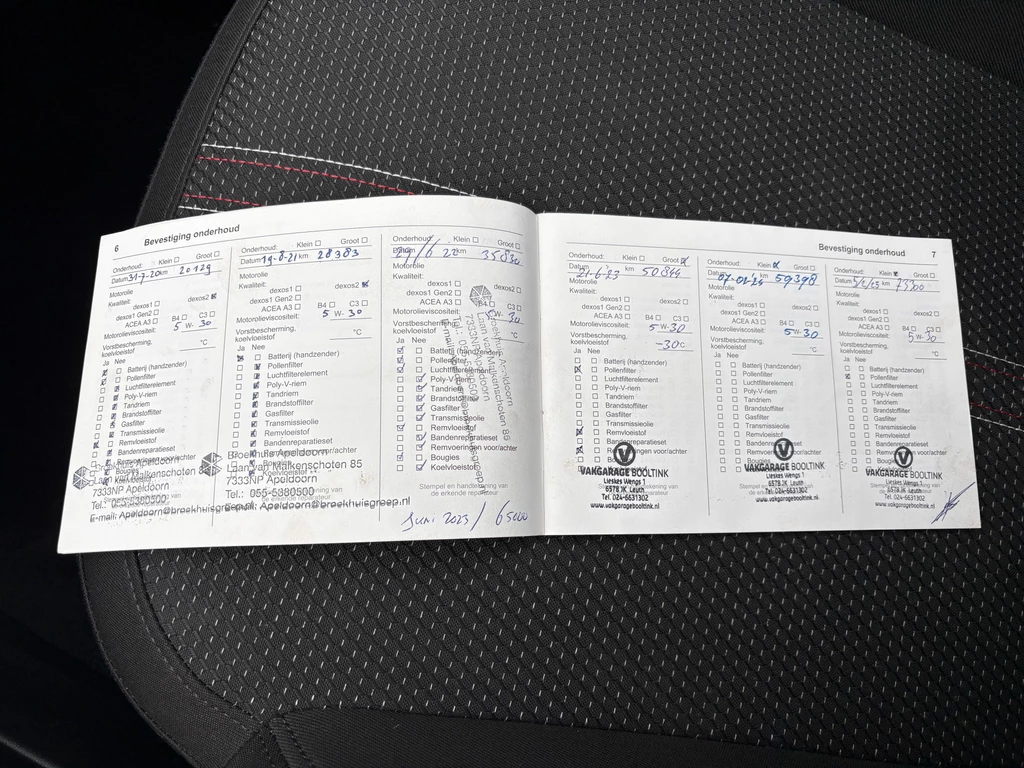 6 Bevestiging onderhoud
Onderhoud: Klein Groot
Datum 31-7-20 km 20129
Motorolie
Kwaliteit:
dexos1 dexos2
dexos1 Gen2
ACEA A3 B4 C3
Motorolieviscositeit: 5 W-30
Vorstbescherming, koelvloeistof °C
Ja Nee
Batterij (handzender)
Pollenfilter
Luchtfilterelement
Poly-V-riem
Tandriem
Brandstoffilter
Gasfilter
Transmissieolie
Remvloeistof
Bandenreparatieset
Broekhuis Apeldoorn
Laan van Malkenschoten
7333NP Apeldoorn
Tel.: 055-5380500
E-mail: Apeldoorn@broekhuisgroep.nl
Onderhoud: Klein Groot
Datum 19-8-21 km 28383
Motorolie
Kwaliteit:
dexos1 dexos2
dexos1 Gen2
ACEA A3 B4 C3
Motorolieviscositeit: 5 W-30
Vorstbescherming, koelvloeistof °C
Ja Nee
Batterij (handzender)
Pollenfilter
Luchtfilterelement
Poly-V-riem
Tandriem
Brandstoffilter
Gasfilter
Transmissieolie
Remvloeistof
Bandenreparatieset
Broekhuis Apeldoorn
Laan van Malkenschoten 85
7333NP Apeldoorn
Tel.: 055-5380500
Apeldoorn@broekhuisgroep.nl
Onderhoud: Klein Groot
Datum 29/6 22 km 35830
Motorolie
Kwaliteit:
dexos1 dexos2
dexos1 Gen2
ACEA A3 B4 C3
Motorolieviscositeit: 5 W-30
Vorstbescherming, koelvloeistof °C
Ja Nee
Batterij (handzender)
Pollenfilter
Luchtfilterelement
Poly-V-riem
Tandriem
Brandstoffilter
Gasfilter
Transmissieolie
Remvloeistof
Bandenreparatieset
Remvoeringen voor/achter
Bougies
Koelvloeistof
Stempel en handtekening van de erkende reparateur
Juni 2025 / 65000
Bevestiging onderhoud 7
Onderhoud: Klein Groot
Datum 21-6-23 km 50844
Motorolie
Kwaliteit:
dexos1 dexos2
dexos1 Gen2
ACEA A3 B4 C3
Motorolieviscositeit: 5 W-30
Vorstbescherming, koelvloeistof -30°C
Ja Nee
Batterij (handzender)
Pollenfilter
Luchtfilterelement
Poly-V-riem
Tandriem
Brandstoffilter
Gasfilter
Transmissieolie
Remvloeistof
Bandenreparatieset
VAKGARAGE BOOLTINK
Lieskes Wengs 1
6578 JK Leuth
Tel. 024-6631302
www.vakgaragebooltink.nl
Onderhoud: Klein Groot
km 59398
Motorolie
Kwaliteit:
dexos1 dexos2
dexos1 Gen2
ACEA A3 B4 C3
Motorolieviscositeit: 5 W-30
Vorstbescherming, koelvloeistof °C
Ja Nee
Batterij (handzender)
Pollenfilter
Luchtfilterelement
Poly-V-riem
Tandriem
Brandstoffilter
Gasfilter
Transmissieolie
Remvloeistof
Bandenreparatieset
Remvoeringen voor/achter
VAKGARAGE BOOLTINK
Lieskes Wengs 1
6578 JK Leuth
Tel. 024-6631302
www.vakgaragebooltink.nl
Onderhoud: Klein Groot
Datum km
Motorolie
Kwaliteit:
dexos1 dexos2
dexos1 Gen2
ACEA A3 B4 C3
Motorolieviscositeit: 5 W-30
Vorstbescherming, koelvloeistof °C
Ja Nee
Batterij (handzender)
Pollenfilter
Luchtfilterelement
Poly-V-riem
Tandriem
Brandstoffilter
Gasfilter
Transmissieolie
Remvloeistof
Bandenreparatieset
Remvoeringen voor/achter
VAKGARAGE BOOLTINK
Lieskes Wengs 1
6578 JK Leuth
Tel. 024-6631302
www.vakgaragebooltink.nl